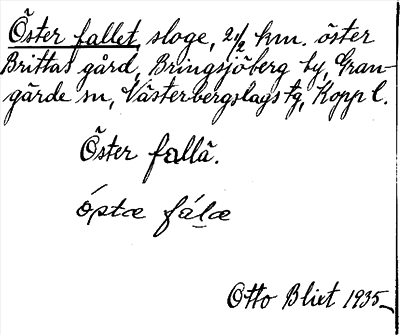 Öster fallet, sloge, 2 1/2 km. öster
Brittas gård, Bringsjöberg by, Gran-
gärde sn, Västerbergslags tg, Kopp l.
Öster fallä.
óstæ fálæ
Otto Blixt 1935